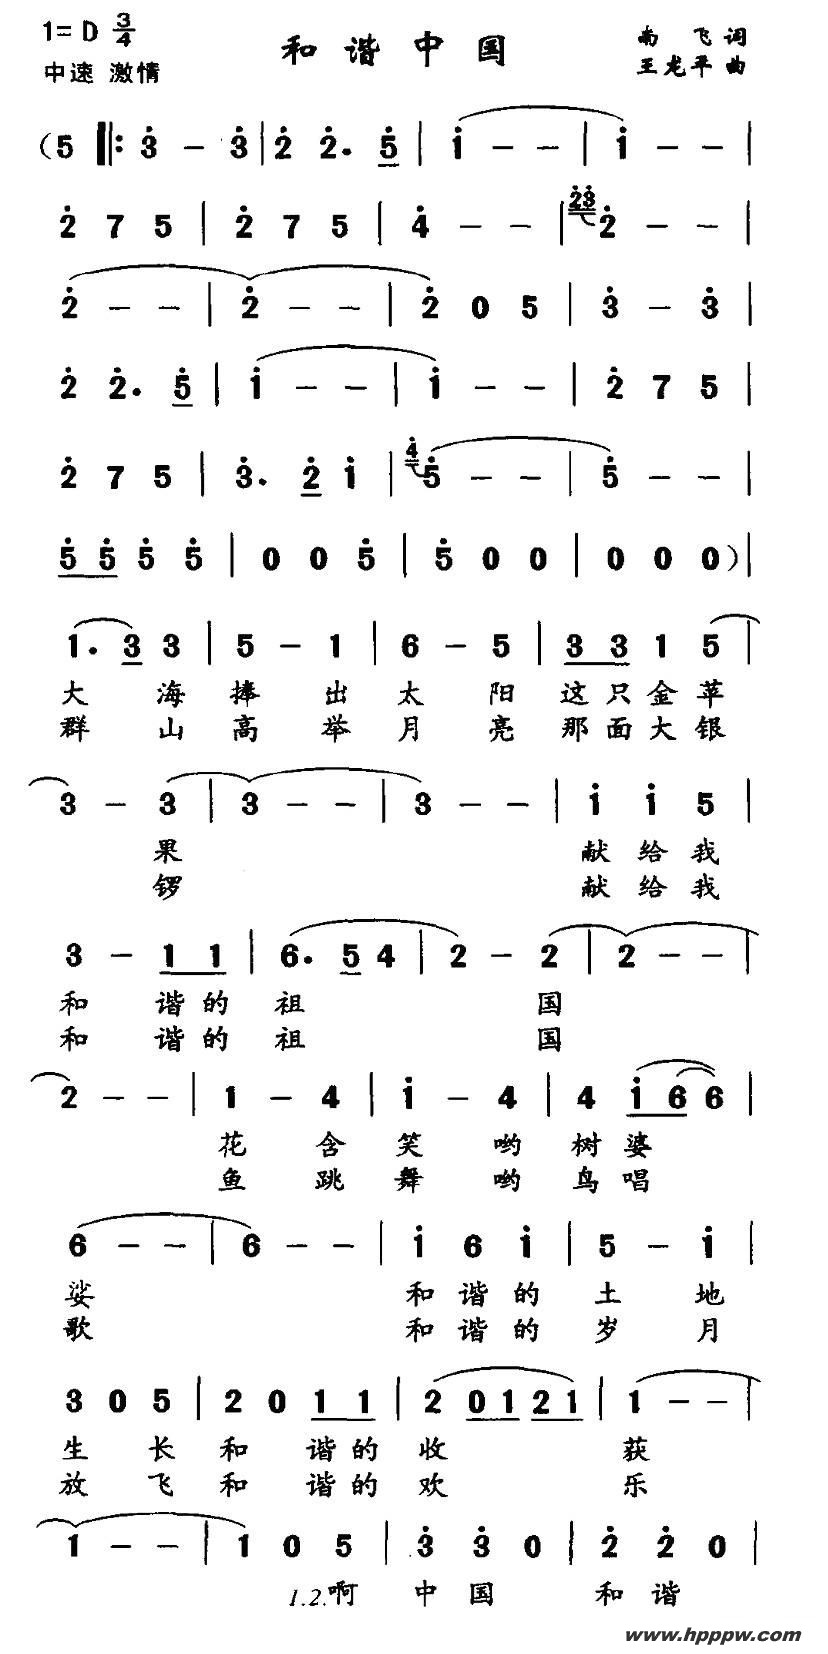 1= D 3/4
和谐中国
南飞词
中速 激情
王龙平曲
(5 ‖: 3 – 3 | 2 2. 5 | i – – | i – – |
2 7 5 | 2 7 5 | 4 – – | 23 2 – – |
2 – – | 2 – – | 2 0 5 | 3 – 3 |
2 2. 5 | i – – | i – – | 2 7 5 |
2 7 5 | 3. 2 i | 4 5 – – | 5 – – |
5 5 5 5 | 0 0 5 | 5 0 0 | 0 0 0 ) |
1. 3 3 | 5 – 1 | 6 – 5 | 3 3 1 5 |
大 海 捧 出 太 阳 这 只 金 苹
群 山 高 举 月 亮 那 面 大 银
3 – 3 | 3 – – | 3 – – | i i 5 |
果 献 给 我
锣 献 给 我
3 – 1 1 | 6. 5 4 | 2 – 2 | 2 – – |
和 谐 的 祖 国
和 谐 的 祖 国
2 – – | 1 – 4 | i – 4 | 4 i 6 6 |
花 含 笑 哟 树 婆
鱼 跳 舞 哟 鸟 唱
6 – – | 6 – – | i 6 i | 5 – i |
娑 和 谐 的 土 地
歌 和 谐 的 岁 月
3 0 5 | 2 0 1 1 | 2 0 1 2 1 | 1 – – |
生 长 和 谐 的 收 获
放 飞 和 谐 的 欢 乐
1 – – | 1 0 5 | 3 3 0 | 2 2 0 |
1.2.啊 中 国 和 谐
www.hpppw.com